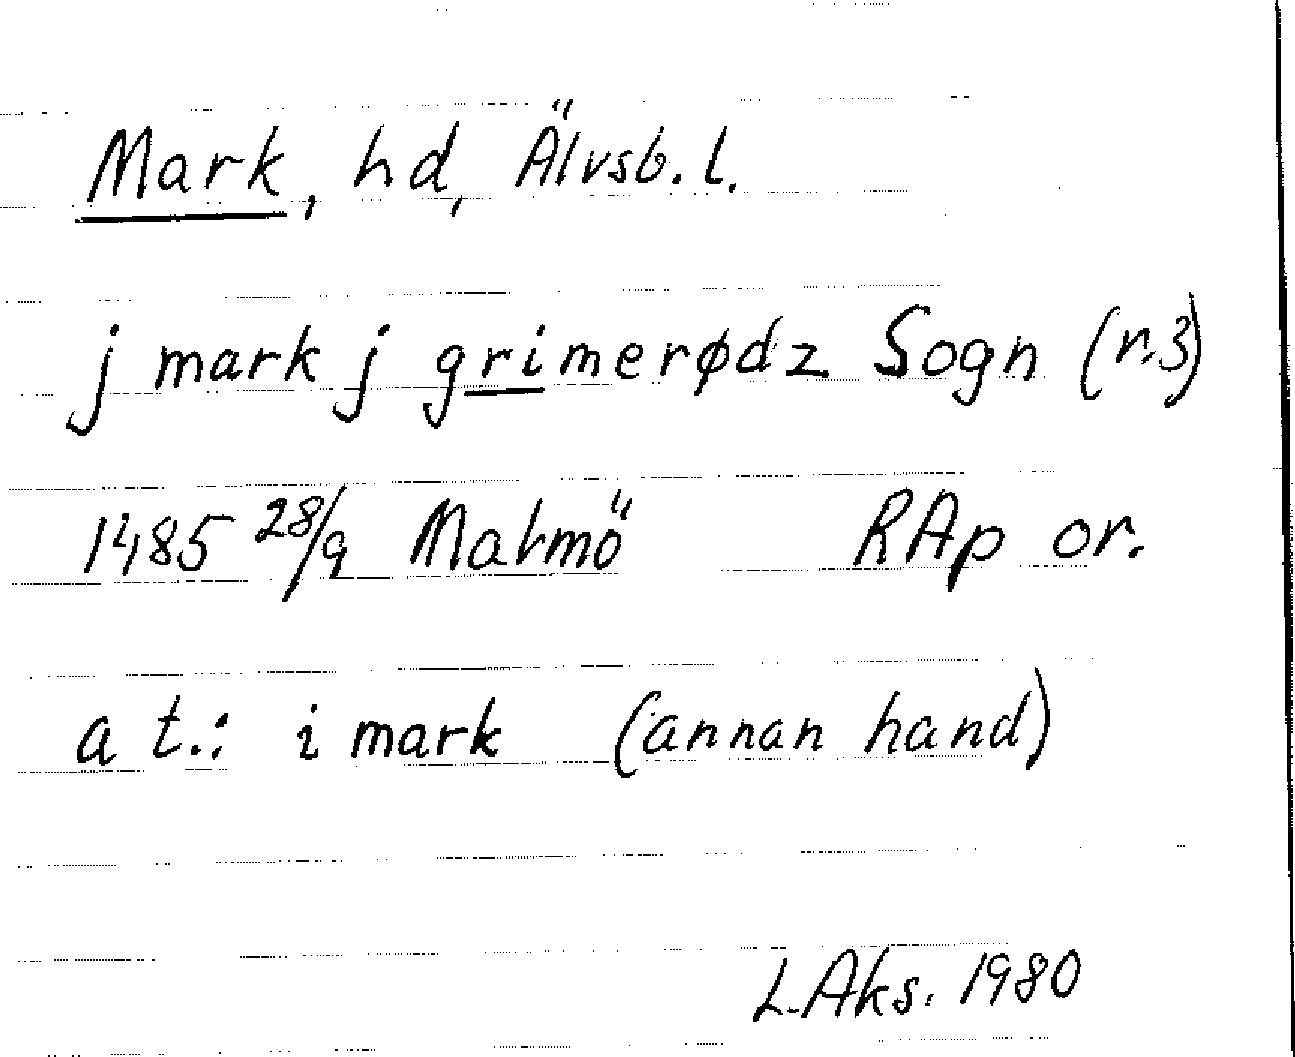 Mark, hd, Älvsb. l.
j mark j grimerødz Sogn (r.3)
1485 28/9 Malmö RAp or.
a t.: i mark (annan hand)
L. Aks. 1980